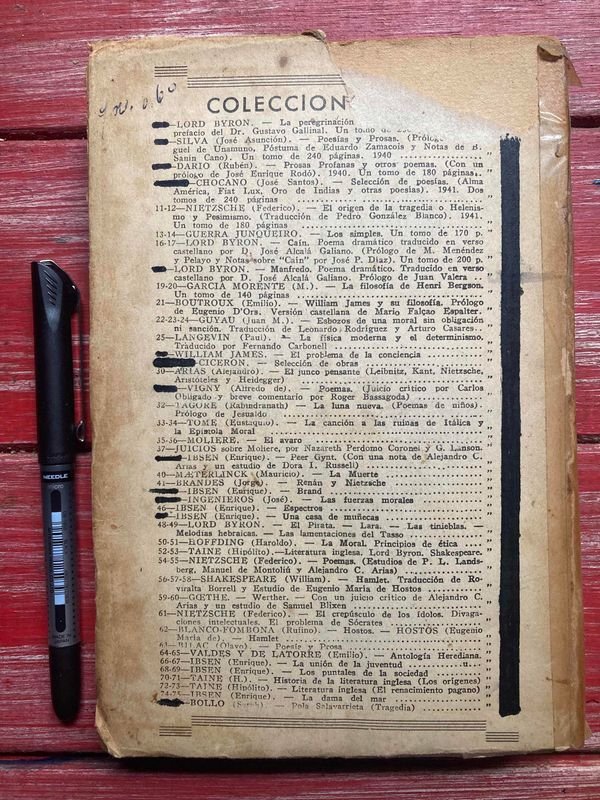 0.60
COLECCION
—LORD BYRON. — La peregrinación
prefacio del Dr. Gustavo Gallinal. Un tomo de
—SILVA (José Asunción). — Poesías y Prosas. (Prólo
guel de Unamuno, Póstuma de Eduardo Zamacois y Notas de B.
Sanín Cano). Un tomo de 240 páginas. 1940
—DARIO (Rubén). — Prosas Profanas y otros poemas. (Con un
prólogo de José Enrique Rodó). 1940. Un tomo de 180 páginas.
—CHOCANO (José Santos). — Selección de poesías. (Alma
América, Fiat Lux, Oro de Indias y otras poesías). 1941. Dos
tomos de 240 páginas
11-12—NIETZSCHE (Federico). — El origen de la tragedia o Helenis-
mo y Pesimismo. (Traducción de Pedro González Blanco). 1941.
Un tomo de 180 páginas
13-14—GUERRA JUNQUEIRO. — Los simples. Un tomo de 170 p.
16-17—LORD BYRON. — Caín. Poema dramático traducido en verso
castellano por D. José Alcalá Galiano. (Prólogo de M. Menéndez
y Pelayo y Notas sobre "Caín" por José P. Díaz). Un tomo de 200 p.
—LORD BYRON. — Manfredo. Poema dramático. Traducido en verso
castellano por D. José Alcalá Galiano. Prólogo de Juan Valera ..
19-20—GARCIA MORENTE (M.). — La filosofía de Henri Bergson.
Un tomo de 140 páginas
21—BOUTROUX (Emilio). — William James y su filosofía. Prólogo
de Eugenio D'Ors. Versión castellana de Mario Falçao Espalter.
22-23-24—GUYAU (Juan M.). — Esbozos de una moral sin obligación
ni sanción. Traducción de Leonardo Rodríguez y Arturo Casares..
25—LANGEVIN (Paul). — La física moderna y el determinismo.
Traducido por Fernando Carbonell
—WILLIAM JAMES. — El problema de la conciencia
—CICERON. — Selección de obras
30—ARIAS (Alejandro). — El junco pensante (Leibnitz, Kant, Nietzsche,
Aristóteles y Heidegger)
—VIGNY (Alfredo de). — Poemas. (Juicio crítico por Carlos
Obligado y breve comentario por Roger Bassagoda)
32—TAGORE (Rabindranath) — La luna nueva. (Poemas de niños).
Prólogo de Jesualdo
33-34—TOME (Eustaquio). — La canción a las ruinas de Itálica y
la Epístola Moral
35-36—MOLIERE. — El avaro
37—JUICIOS sobre Moliere, por Nazareth Perdomo Coronel y G. Lanson.
—IBSEN (Enrique). — Peer Gynt. (Con una nota de Alejandro C.
Arias y un estudio de Dora I. Russell)
40—MÆTERLINCK (Mauricio). — La Muerte
41—BRANDES (Jorge). — Renán y Nietzsche
—IBSEN (Enrique). — Brand
—INGENIEROS (José). — Las fuerzas morales
46—IBSEN (Enrique). — Espectros
—IBSEN (Enrique). — Una casa de muñecas
48-49—LORD BYRON. — El Pirata. — Lara. — Las tinieblas. —
Melodías hebraicas. — Las lamentaciones del Tasso
50-51—HOFFDING (Haroldo). — La Moral. Principios de ética
52-53—TAINE (Hipólito).—Literatura inglesa. Lord Byron. Shakespeare.
54-55—NIETZSCHE (Federico). — Poemas. (Estudios de P. L. Lands-
berg, Manuel de Montoliú y Alejandro C. Arias)
56-57-58—SHAKESPEARE (William). — Hamlet. Traducción de Ro-
viralta Borrell y Estudio de Eugenio María de Hostos
59-60—GŒTHE. — Werther. — Con un juicio crítico de Alejandro C.
Arias y un estudio de Samuel Blixen
61—NIETZSCHE (Federico). — El crepúsculo de los ídolos. Divaga-
ciones intelectuales. El problema de Sócrates
62—BLANCO-FOMBONA (Rufino). — Hostos. — HOSTOS (Eugenio
María de). — Hamlet
63—BILAC (Olavo). — Poesía y Prosa
64-65—VALDES Y DE LATORRE (Emilio). — Antología Herediana.
66-67—IBSEN (Enrique). — La unión de la juventud
68-69—IBSEN (Enrique). — Los puntales de la sociedad
70-71—TAINE (H.). — Historia de la literatura inglesa (Los orígenes)
72-73—TAINE (Hipólito). — Literatura inglesa (El renacimiento pagano)
74-75—IBSEN (Enrique). — La dama del mar
—BOLLO (Sarah). — Pola Salavarrieta (Tragedia)
NEEDLE
MADE IN
JAPAN